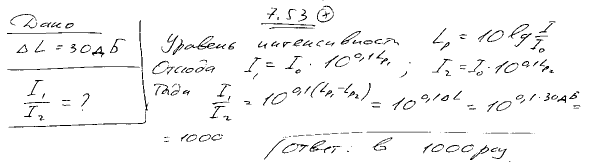 7.53 +
Дано
ΔL = 30дБ
I₁/I₂ = ?
Уровень интенсивности Lₚ = 10 lg I/I₀
Отсюда I₁ = I₀ · 10^(0,1Lₚ₁) ; I₂ = I₀ · 10^(0,1Lₚ₂)
Тогда I₁/I₂ = 10^(0,1(Lₚ₁-Lₚ₂)) = 10^(0,1ΔL) = 10^(0,1·30дБ) =
= 1000
Ответ: в 1000 раз